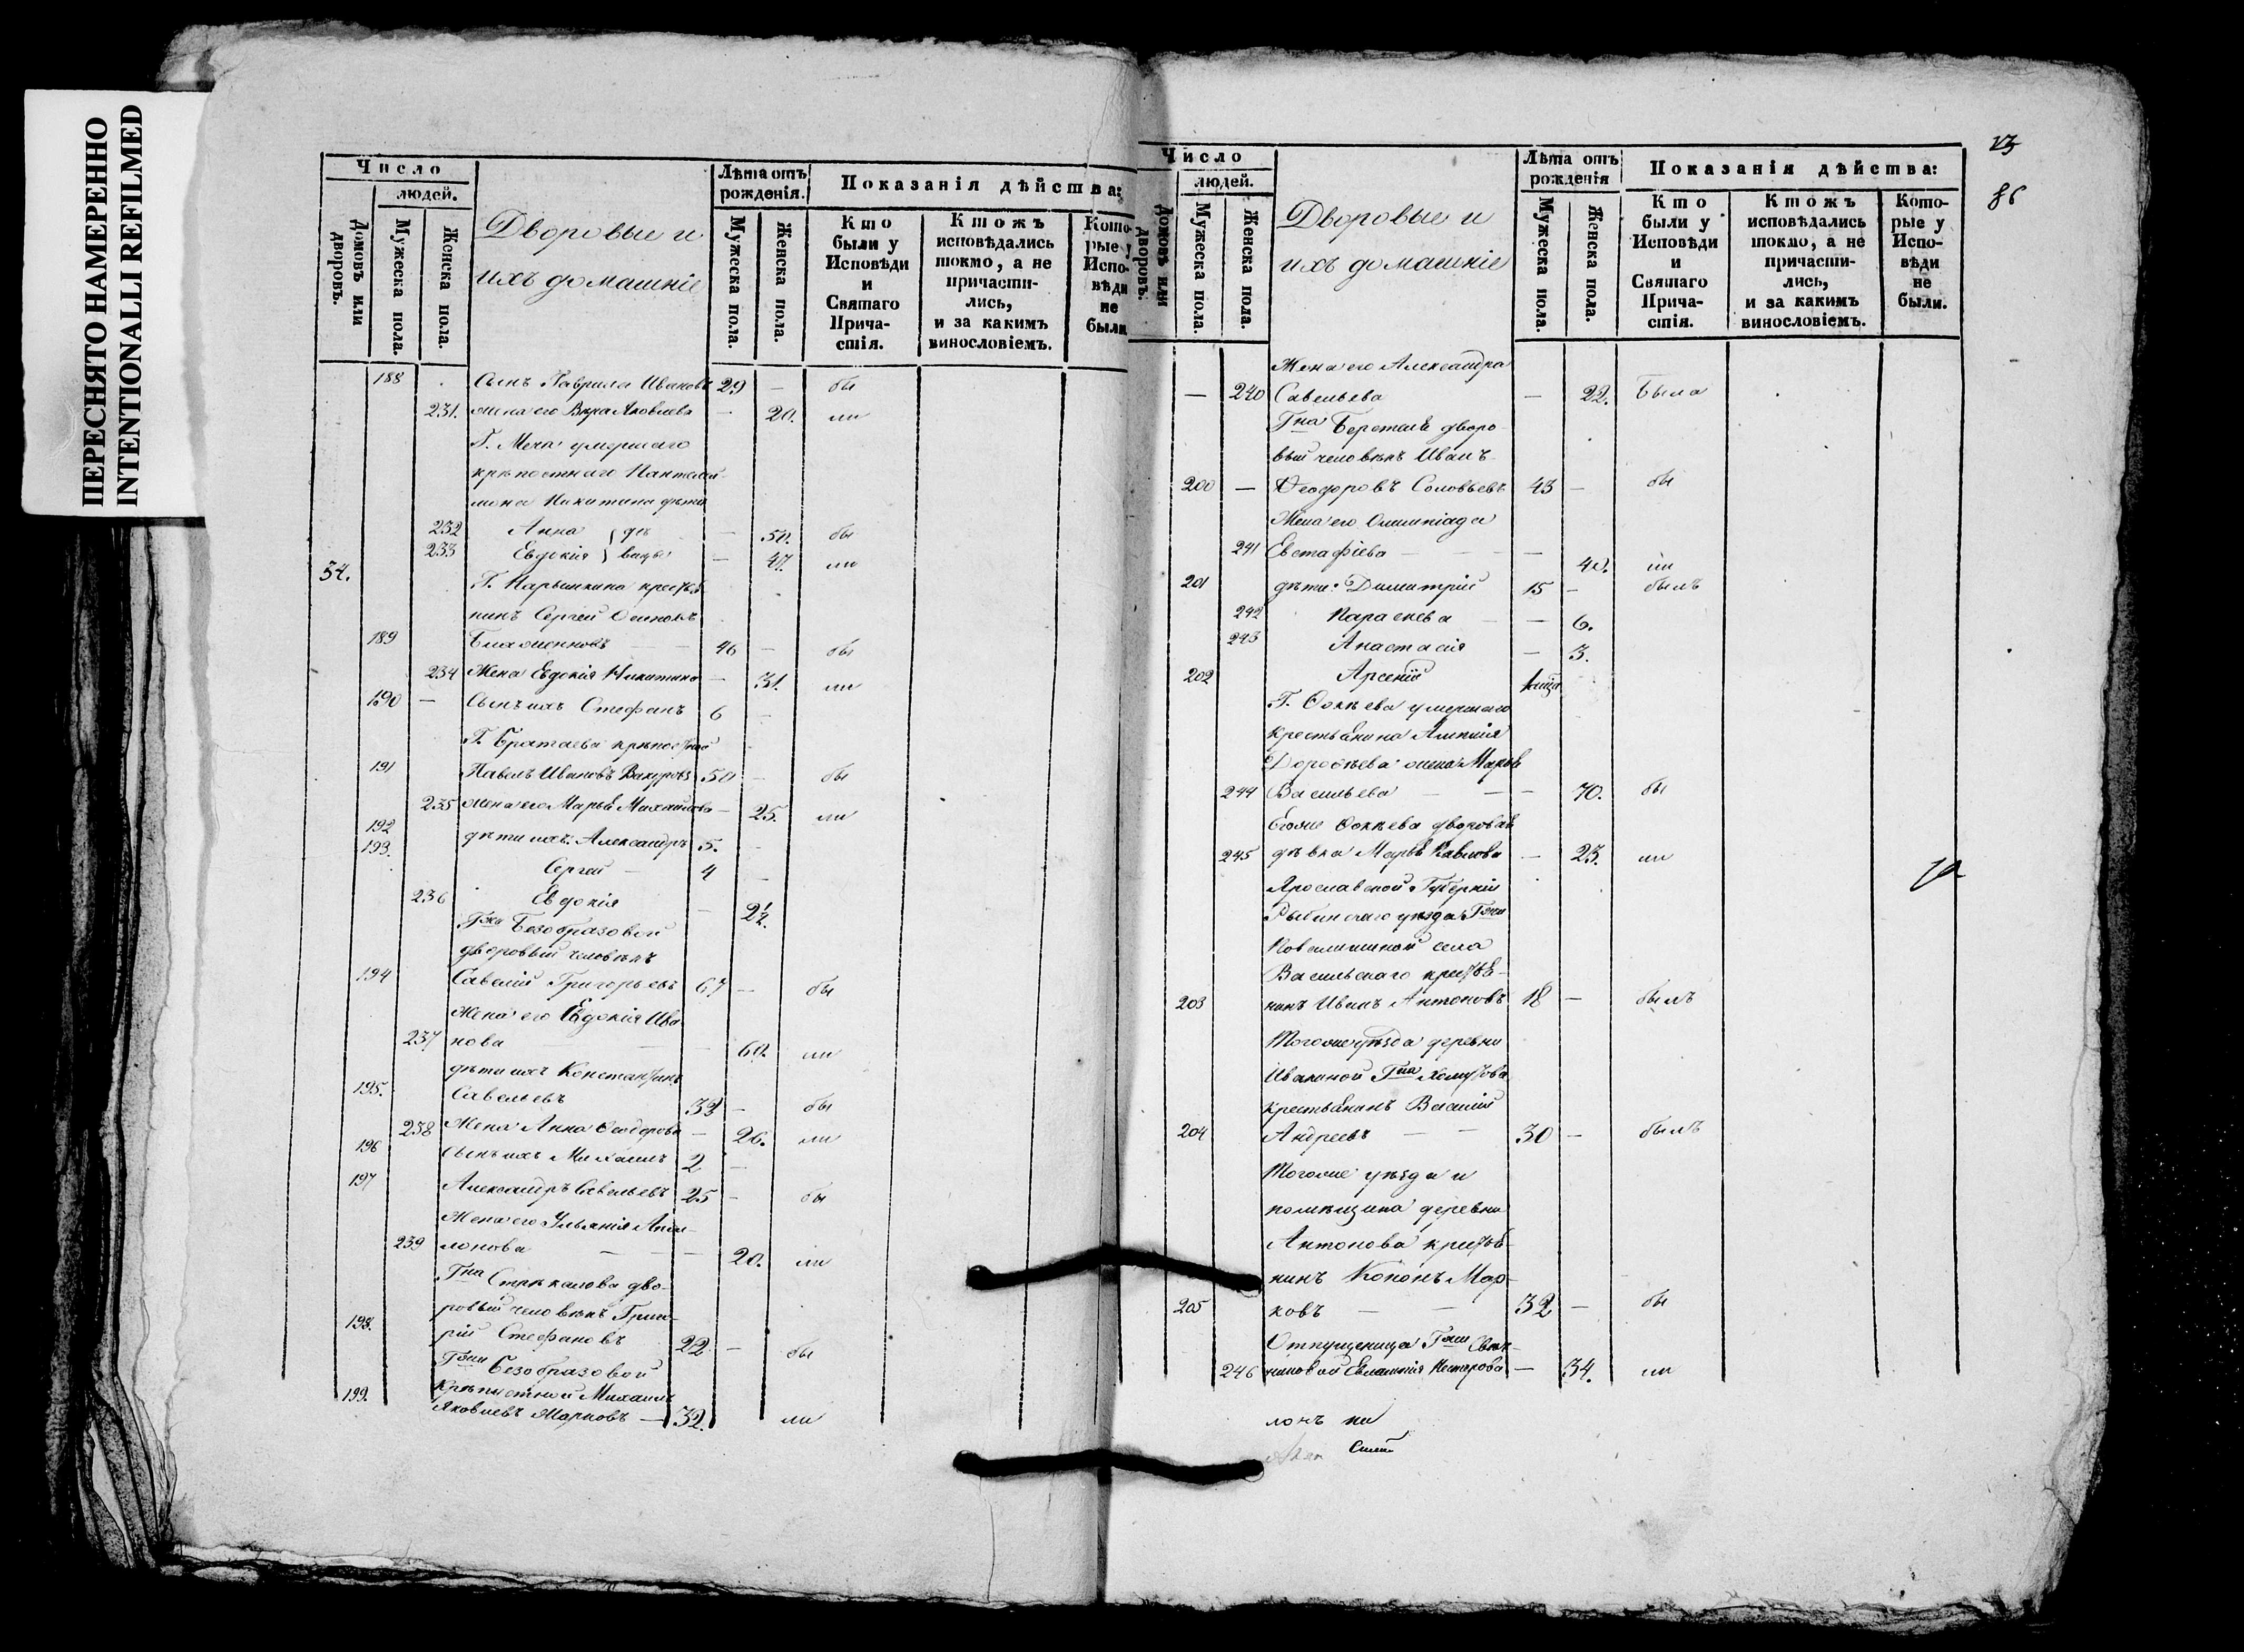 ПЕРЕСНЯТО НАМЕРЕННО
INTENTIONALLI REFILMED
Число
людей.
Домовъ или дворовъ.
Мужеска пола.
Женска пола.
Дворовые и
ихъ домашніе
Лѣта отъ рожденія.
Мужеска пола.
Женска пола.
Показанія дѣйства:
Кто были у Исповѣди и Святаго Причастія.
Ктожъ исповѣдались токмо, а не причастились, и за какимъ винословіемъ.
Которые у Исповѣди не были
188 Сынъ Гаврила Ивановъ 29 — бы
231. жена его Вера Яковлева — 20. ли
Г. умершаго
крѣпостнаго Пантелей
мона Никитина дѣти
232 Анна } дѣ — 50. бы
233 Евдокія } вицы — 47. ли
34. Г. Нарышкина крестья
нинъ Сергей Осиповъ
189 46 — бы
234 Жена Евдокія Никитина — 31. ли
190 — Сынъ ихъ Стефанъ 6 —
Г. Братаева крѣпостной
191 Павелъ Ивановъ 50 — бы
235 жена его Марья Михайлова — 25. ли
192 дѣти ихъ: Александръ 5. —
193. Сергей — 4 —
236 Евдокія — 2½.
Гжи Безобразовой
дворовый человѣкъ
194 Савелій Григорьевъ 67 — бы
Жена его Евдокія Ива
237 нова — 60. ли
дѣти ихъ Константинъ
195. Савельевъ 33 — бы
238 Жена Анна Феодорова — 26. ли
196 Сынъ ихъ Михаилъ 2 —
197 Александръ Савельевъ 25 — бы
Жена его Ульянія Апол-
239 лонова — — — 20. ли
Гна Стрѣкалова дво-
ровый человѣкъ Григо-
198. рій Стефановъ 22 — бы
Гжи Безобразовой
крѣпостной Михаилъ
199. Яковлевъ Марковъ — 32. ли
23
86
Число
людей.
Домовъ или дворовъ.
Мужеска пола.
Женска пола.
Дворовые и
ихъ домашніе
Лѣта отъ рожденія
Мужеска пола.
Женска пола.
Показанія дѣйства:
Кто были у Исповѣди и Святаго Причастія.
Ктожъ исповѣдались токмо, а не причастились, и за какимъ винословіемъ.
Которые у Исповѣди не были.
Жена его Александра
— 240 Савельева — 22. Была
Гна дворо
вый человѣкъ Иванъ
200 — Феодоровъ Соловьевъ 43 — бы
Жена его Олимпіада
241 Евстафіева — — 40. ли
201 дѣти: Димитрій 15 — былъ
242 Параскева — — 6.
243 Анастасія — 3.
202 Арсеній
Г. Фокѣева умершаго
крестьянина
Дорофѣева жена Марья
244 Васильева — — — 70. бы
Егоже Фокѣева дворовая
245 дѣвка Марья Павлова — 23. ли
Ярославской Губерніи
Рыбинскаго уѣзда Гжи
села
Васильскаго крестья-
203 нинъ Иванъ Антоновъ 18 — былъ
Тогоже уѣзда деревни
Ивакиной Гна Хомутова
крестьянинъ Василій
204 Андреевъ — — 30 — былъ
Тогоже уѣзда и
помѣщика деревни
Антонова крестья-
нинъ Кононъ Мар-
205 ковъ — — 32 — бы
Отпущеница Гжи Свѣч-
246 никовой Нестерова — 34. ли